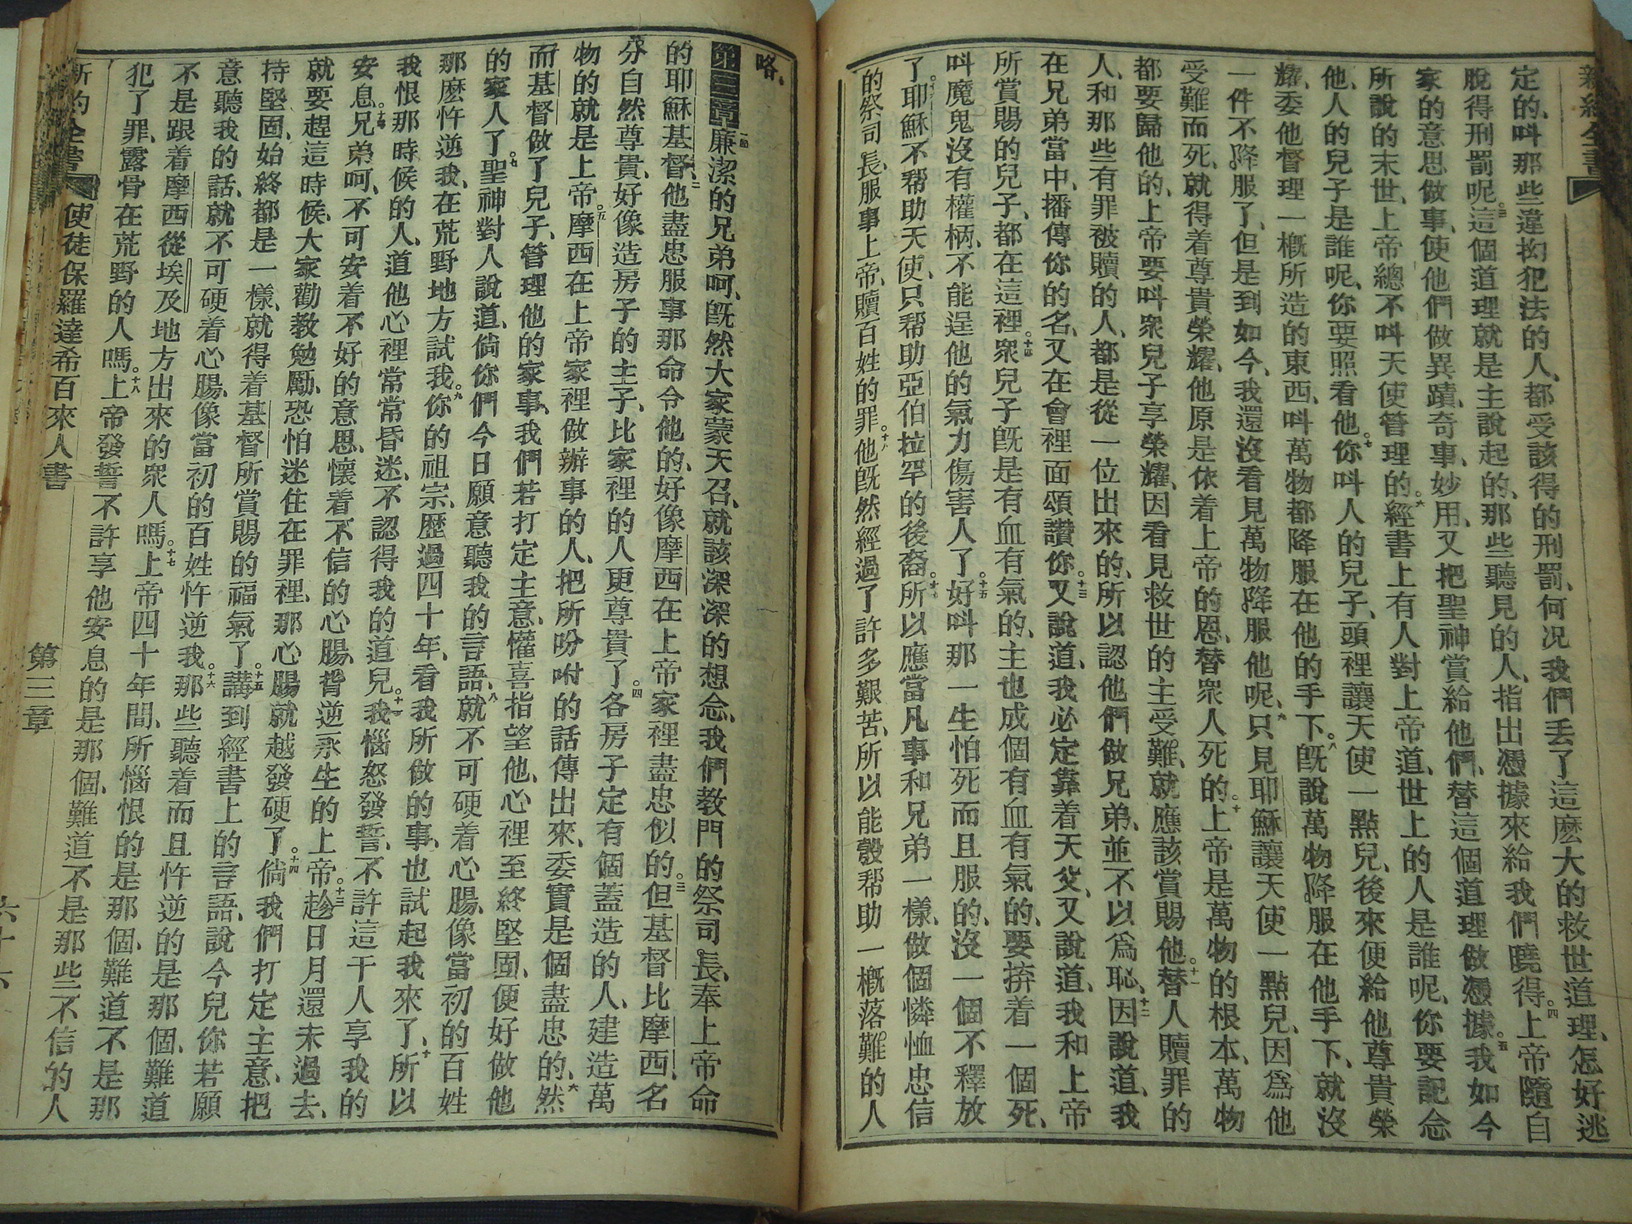 新約全書
定的、呌那些違拗犯法的人、都受該得的刑罰、何况我們丟了這麽大的救世道理、怎好逃
脫得刑罰呢。三這個道理就是主說起的、那些聽見的人、指出憑據來給我們曉得。四上帝隨自
家的意思做事、使他們做異蹟、奇事、妙用、又把聖神賞給他們、替這個道理做憑據。五我如今
所說的末世、上帝總不呌天使管理的。六經書上有人對上帝道、世上的人是誰呢、你要記念
他、人的兒子是誰呢、你要照看他。七你呌人的兒子、頭裡讓天使一點兒、後來便給他尊貴榮
耀、委他督理一概所造的東西、呌萬物都降服在他的手下。八旣說萬物降服在他手下、就沒
一件不降服了、但是到如今、我還沒看見萬物降服他呢。九只見耶穌讓天使一點兒、因爲他
受難而死、就得着尊貴榮耀、他原是依着上帝的恩、替衆人死的。十上帝是萬物的根本、萬物
都要歸他的、上帝要呌衆兒子享榮耀、因看見救世的主受難、就應該賞賜他。十一替人贖罪的
人、和那些有罪被贖的人、都是從一位出來的、所以認他們做兄弟、並不以爲恥。十二因說道、我
在兄弟當中、播傳你的名、又在會裡面頌讚你。十三又說道、我必定靠着天父、又說道、我和上帝
所賞賜的兒子、都在這裡。十四衆兒子旣是有血有氣的、主也成個有血有氣的、要拚着一個死、
呌魔鬼沒有權柄、不能逞他的氣力傷害人了。十五好呌那一生怕死而且服的、沒一個不釋放
了。十六耶穌不帮助天使、只帮助亞伯拉罕的後裔。十七所以應當凡事和兄弟一樣、做個憐恤忠信
的祭司長、服事上帝、贖百姓的罪。十八他旣然經過了許多艱苦、所以能彀帮助一概落難的人
略、
第三章一節廉潔的兄弟呵、旣然大家蒙天召、就該深深的想念、我們教門的祭司長、奉上帝命
的耶穌基督。二他盡忠服事那命令他的、好像摩西在上帝家裡盡忠似的。三但基督比摩西、名
分自然尊貴、好像造房子的主子、比家裡的人更尊貴了。四各房子定有個蓋造的人、建造萬
物的就是上帝。五摩西在上帝家裡做辦事的人、把所吩咐的話傳出來、委實是個盡忠的。六然
而基督做了兒子、管理他的家事、我們若打定主意、懽喜指望他、心裡至終堅固、便好做他
的家人了。七聖神對人說道、倘你們今日願意聽我的言語、八就不可硬着心腸、像當初的百姓
那麽忤逆我、在荒野地方試我。九你的祖宗、歷過四十年、看我所做的事、也試起我來了。十所以
我恨那時候的人、道他心裡常常昏迷、不認得我的道兒。十一我惱怒發誓、不許這干人享我的
安息。十二兄弟呵、不可安着不好的意思、懷着不信的心腸、揹逆永生的上帝。十三趁日月還未過去、
就要趕這時候、大家勸教勉勵、恐怕迷住在罪裡、那心腸就越發硬了。十四倘我們打定主意、把
持堅固、始終都是一樣、就得着基督所賞賜的福氣了。十五講到經書上的言語、說今兒你若願
意聽我的話、就不可硬着心腸、像當初的百姓忤逆我。十六那些聽着而且忤逆的是那個、難道
不是跟着摩西從埃及地方出來的衆人嗎。十七上帝四十年間、所惱恨的是那個、難道不是那
犯了罪、露骨在荒野的人嗎。十八上帝發誓不許享他安息的是那個、難道不是那些不信的人
新約全書 使徒保羅達希百來人書 第三章 六十六